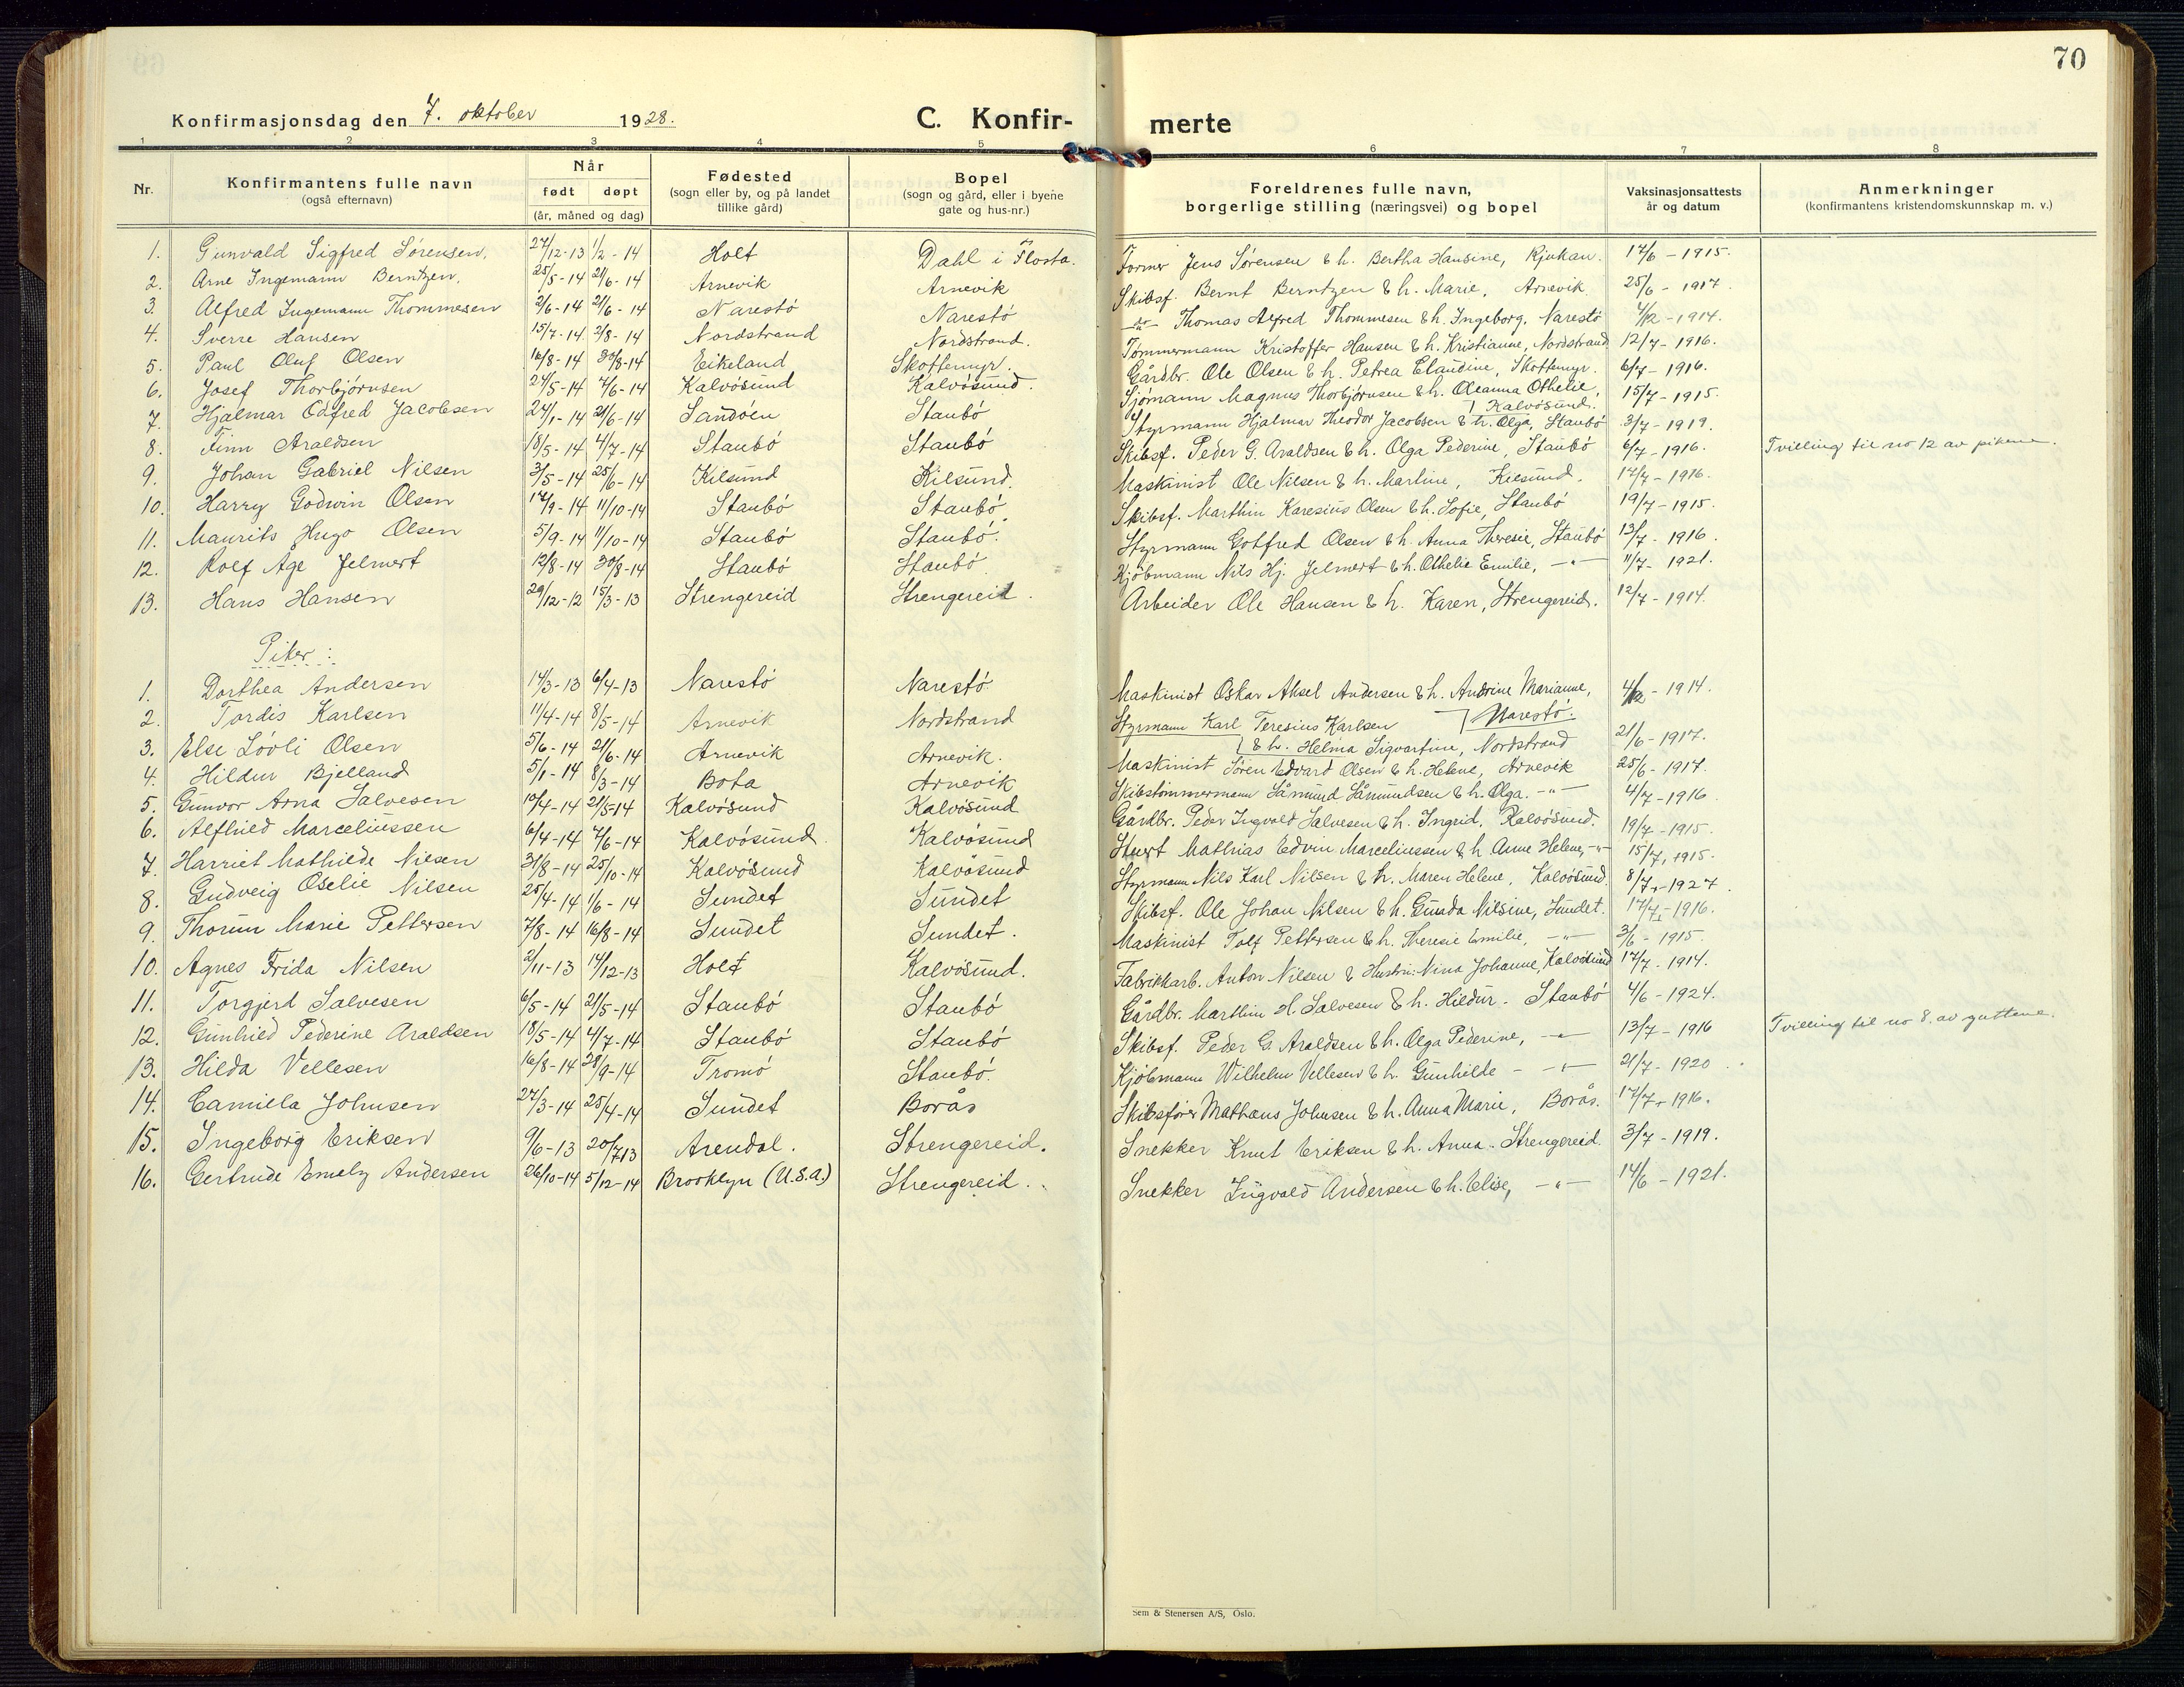 70
Konfirmasjonsdag den 7. oktober 1928.
C. Konfir-merte
1 2 3 4 5 6 7 8
Nr.
Konfirmantens fulle navn
(også efternavn)
Når
født døpt
(år, måned og dag)
Fødested
(sogn eller by, og på landet
tillike gård)
Bopel
(sogn og gård, eller i byene
gate og hus-nr.)
Foreldrenes fulle navn,
borgerlige stilling (næringsvei) og bopel
Vaksinasjonsattests
år og datum
Anmerkninger
(konfirmantens kristendomskunnskap m. v.)
1. Gunvald Sigfred Sørensen. 27/12-13 1/2-14 Holt Dahl i Flosta. Former Jens Sørensen & h. Bertha Hansine, Rjukan. 17/6-1915.
2. Arne Ingemann Berntzen. 25/5-14 21/6-14 Arnevik Arnevik Skibsf. Bernt Berntzen & h. Marie, Arnevik 25/6-1917.
3. Alfred Ingemann Thommesen 2/6-14 21/6-14 Narestö Narestö -"- Thomas Alfred Thommesen & h. Ingeborg. Narestö 4/12-1914.
4. Sverre Hansen 15/7-14 2/8-14 Nordstrand Nordstrand. Tømmermann Kristoffer Hansen & h. Kristianne, Nordstrand 12/7-1916.
5. Paul Oluf Olsen 16/8-14 30/8-14 Eikeland Skottemyr. Gårdbr. Ole Olsen & h. Petrea Claudine, Skottemyr. 6/7-1916.
6. Josef Thorbjørnsen 24/5-14 7/6-14 Kalvösund Kalvösund. Sjömann Magnus Thorbjørnsen & h. Oleanna Othelie, Kalvösund. 15/7-1915.
7. Hjalmar Odfred Jacobsen 24/1-14 21/6-14 Sandöen Staubö Styrmann Hjalmar Theodor Jacobsen & h. Olga, Staubö 3/7-1919.
8. Finn Araldsen 18/5-14 4/7-14 Staubö Staubö Skibsf. Peder G. Araldsen & h. Olga Pederine, Staubö 6/7-1916. Tvilling til no 12 av pikene.
9. Johan Gabriel Nilsen 3/5-14 25/6-14 Kilsund Kilsund. Maskinist Ole Nilsen & h. Martine, Kilsund. 17/7-1916.
10. Harry Godwin Olsen 17/9-14 11/10-14 Staubö Staubö Skibsf. Marthin Karesius Olsen & h. Sofie, Staubö 19/7-1915.
11. Maurits Hugo Olsen 5/9-14 11/10-14 Staubö Staubö. Styrmann Gotfred Olsen & h. Anna Theresie, Staubö 13/7-1916.
12. Rolf Åge Jelmert 12/8-14 30/8-14 Staubö Staubö Kjöbmann Nils Hj. Jelmert & h. Othelie Emilie, -"- 11/7-1921.
13. Hans Hansen 29/12-12 15/3-13 Strengereid Strengereid. Arbeider Ole Hansen & h. Karen, Strengereid. 12/7-1914.
Piker:
1. Dorthea Andersen 14/3-13 6/4-13 Narestö Narestö. Maskinist Oskar Aksel Andersen & h. Andrine Marianne, Narestö. 4/12-1914.
2. Tordis Karlsen 11/4-14 8/5-14 Arnevik Nordstrand Styrmann Karl Teresius Karlsen & h. Helma Sigvartine, Nordstrand 21/6-1917.
3. Else Lövli Olsen 5/6-14 21/6-14 Arnevik Arnevik. Maskinist Sören Edvard Olsen & h. Helene, Arnevik 25/6-1917.
4. Hildur Bjelland 5/1-14 8/3-14 Bota Arnevik Skibstömmermann Såmund Såmundsen & h. Olga. -"- 4/7-1916
5. Gunvor Arna Salvesen 10/4-14 21/5-14 Kalvösund Kalvösund Gårdbr. Peder Ingvald Salvesen & h. Ingrid. Kalvösund. 19/7-1915.
6. Alfhild Marceliussen 6/4-14 7/6-14 Kalvösund. Kalvösund Stuert Mathias Edvin Marceliussen & h. Anne Helene, -"- 15/7, 1915.
7. Harriet Mathilde Nilsen 31/8-14 25/10-14 Kalvösund Kalvösund Styrmann Nils Karl Nilsen & h. Maren Helene, Kalvösund. 8/7-1927.
8. Gudveig Oselie Nilsen 25/4-14 1/6-14 Sundet Sundet Skibsf. Ole Johan Nilsen & h. Gunda Nilsine, Sundet. 17/7-1916.
9. Thorun Marie Pettersen 7/8-14 16/8-14 Sundet Sundet. Maskinist Tolf Pettersen & h. Theresie Emilie, -"- 3/6-1915.
10. Agnes Frida Nilsen 2/11-13 14/12-13 Holt Kalvösund. Fabrikkarb. Anton Nilsen & Hustru: Nina Johanne, Kalvösund 17/7-1914.
11. Torgjerd Salvesen 6/5-14 21/5-14 Staubö Staubö Gårdbr. Marthin H. Salvesen & h. Hildur. - Staubö 4/6-1924.
12. Gunhild Pederine Araldsen 18/5-14 4/7-14 Staubö Staubö Skibsf. Peder G. Araldsen & h. Olga Pederine, -"- 13/7-1916 Tvilling til no 8. av guttene.
13. Hilda Vellesen 16/8-14 28/9-14 Tromö Staubö. Kjöbmann Wilhelm Vellesen & h. Gunhilde - -"- 21/7-1920
14. Camilla Johnsen 27/3-14 25/4-14 Sundet Borås Skibsfører Mathæus Johnsen & h. Anna Marie, Borås. 17/7-1916.
15. Ingeborg Eriksen 9/6-13 20/7 13 Arendal. Strengereid. Snekker Knut Eriksen & h. Anna. Strengereid. 3/7-1919.
16. Gertrude Emely Andersen 26/10-14 5/12-14 Brooklyn (U.S.A.) Strengereid. Snekker Ingvald Andersen & h. Elise, -"- 14/6-1921.
Sem & Stenersen A/S, Oslo.